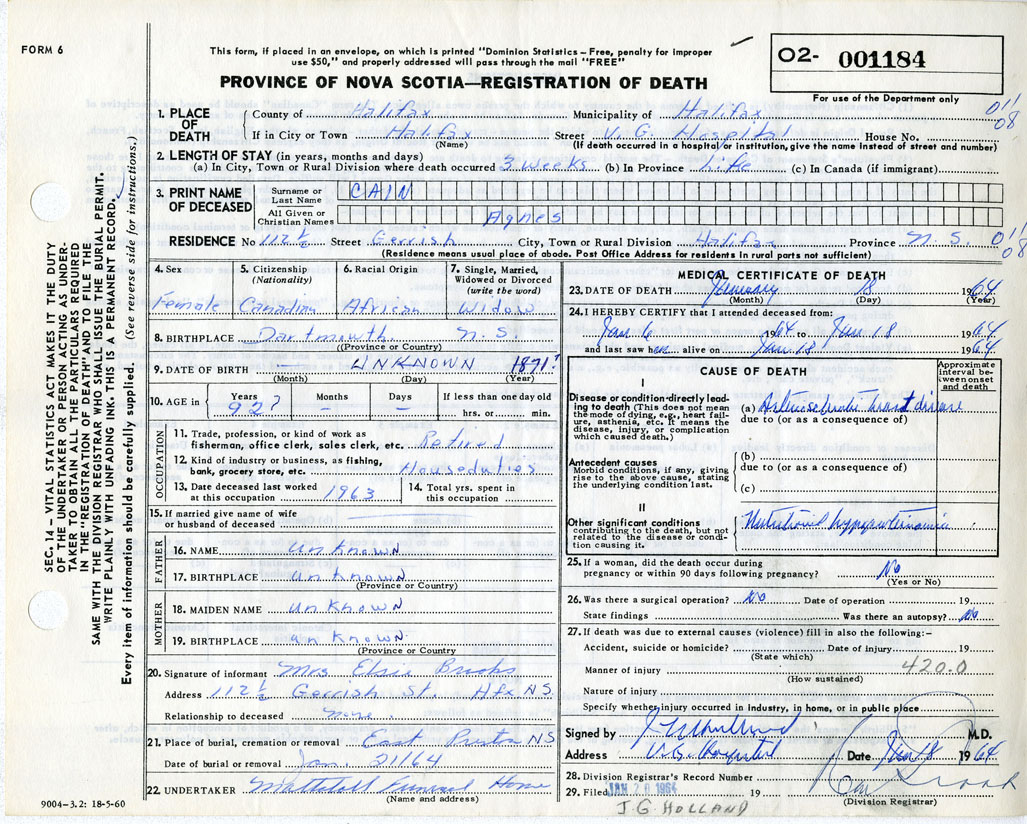 FORM 6
This form, if placed in an envelope, on which is printed "Dominion Statistics – Free, penalty for improper
use $50," and properly addressed will pass through the mail "FREE"
O2- 001184
PROVINCE OF NOVA SCOTIA—REGISTRATION OF DEATH
For use of the Department only
011
08
1. PLACE OF DEATH
County of Halifax Municipality of Halifax
If in City or Town Halifax Street V. G. Hospital House No.
(Name) (If death occurred in a hospital or institution, give the name instead of street and number)
2. LENGTH OF STAY (in years, months and days)
(a) In City, Town or Rural Division where death occurred 3 weeks (b) In Province Life (c) In Canada (if immigrant)
3. PRINT NAME OF DECEASED
Surname or Last Name CAIN
All Given or Christian Names Agnes
RESIDENCE No 112 ½ Street Gerrish City, Town or Rural Division Halifax Province N. S. 011
08
(Residence means usual place of abode. Post Office Address for residents in rural parts not sufficient)
4. Sex
Female
5. Citizenship
(Nationality)
Canadian
6. Racial Origin
African
7. Single, Married,
Widowed or Divorced
(write the word)
Widow
8. BIRTHPLACE Dartmouth N. S.
(Province or Country)
9. DATE OF BIRTH — UNKNOWN 1871?
(Month) (Day) (Year)
10. AGE in
Years Months Days If less than one day old
92? – – hrs. or min.
OCCUPATION
11. Trade, profession, or kind of work as
fisherman, office clerk, sales clerk, etc. Retired
12. Kind of industry or business, as fishing,
bank, grocery store, etc. Houseduties
13. Date deceased last worked
at this occupation 1963
14. Total yrs. spent in
this occupation
15. If married give name of wife
or husband of deceased
FATHER
16. NAME unknown
17. BIRTHPLACE unknown
(Province or Country)
MOTHER
18. MAIDEN NAME unknown
19. BIRTHPLACE unknown
(Province or Country)
20. Signature of informant Mrs Elsie Brooks
Address 112 ½ Gerrish St. Hfx NS
Relationship to deceased none
21. Place of burial, cremation or removal East Preston NS
Date of burial or removal Jan. 21/64
22. UNDERTAKER Mattatall Funeral Home
(Name and address)
9004–3.2: 18-5-60
MEDICAL CERTIFICATE OF DEATH
23. DATE OF DEATH January 18 1964
(Month) (Day) (Year)
24. I HEREBY CERTIFY that I attended deceased from:
Jan 6 1964 to Jan 18 1964
and last saw her alive on Jan. 18 1964
CAUSE OF DEATH
Approximate
interval be-
tween onset
and death
I
Disease or condition directly lead-
ing to death (This does not mean
the mode of dying, e.g., heart fail-
ure, asthenia, etc. It means the
disease, injury, or complication
which caused death.)
(a) Arteriosclerotic heart disease
due to (or as a consequence of)
Antecedent causes
Morbid conditions, if any, giving
rise to the above cause, stating
the underlying condition last.
(b)
due to (or as a consequence of)
(c)
II
Other significant conditions
contributing to the death, but not
related to the disease or condi-
tion causing it.
Nutritional hypoproteinemia
25. If a woman, did the death occur during
pregnancy or within 90 days following pregnancy? No
(Yes or No)
26. Was there a surgical operation? No Date of operation 19
State findings Was there an autopsy? No
27. If death was due to external causes (violence) fill in also the following:–
Accident, suicide or homicide? Date of injury 19
(State which)
Manner of injury 420.0
(How sustained)
Nature of injury
Specify whether injury occurred in industry, in home, or in public place
Signed by M.D.
Address V.G. Hospital Date Jan 18 1964
28. Division Registrar's Record Number
29. Filed JAN 20 1964 19
(Division Registrar)
J. G. HOLLAND
SEC. 14 – VITAL STATISTICS ACT MAKES IT THE DUTY
OF THE UNDERTAKER OR PERSON ACTING AS UNDER-
TAKER TO OBTAIN ALL THE PARTICULARS REQUIRED
IN THE "REGISTRATION OF DEATH" AND TO FILE THE
SAME WITH THE DIVISION REGISTRAR WHO SHALL ISSUE THE BURIAL PERMIT.
WRITE PLAINLY WITH UNFADING INK. THIS IS A PERMANENT RECORD.
Every item of information should be carefully supplied. (See reverse side for instructions.)